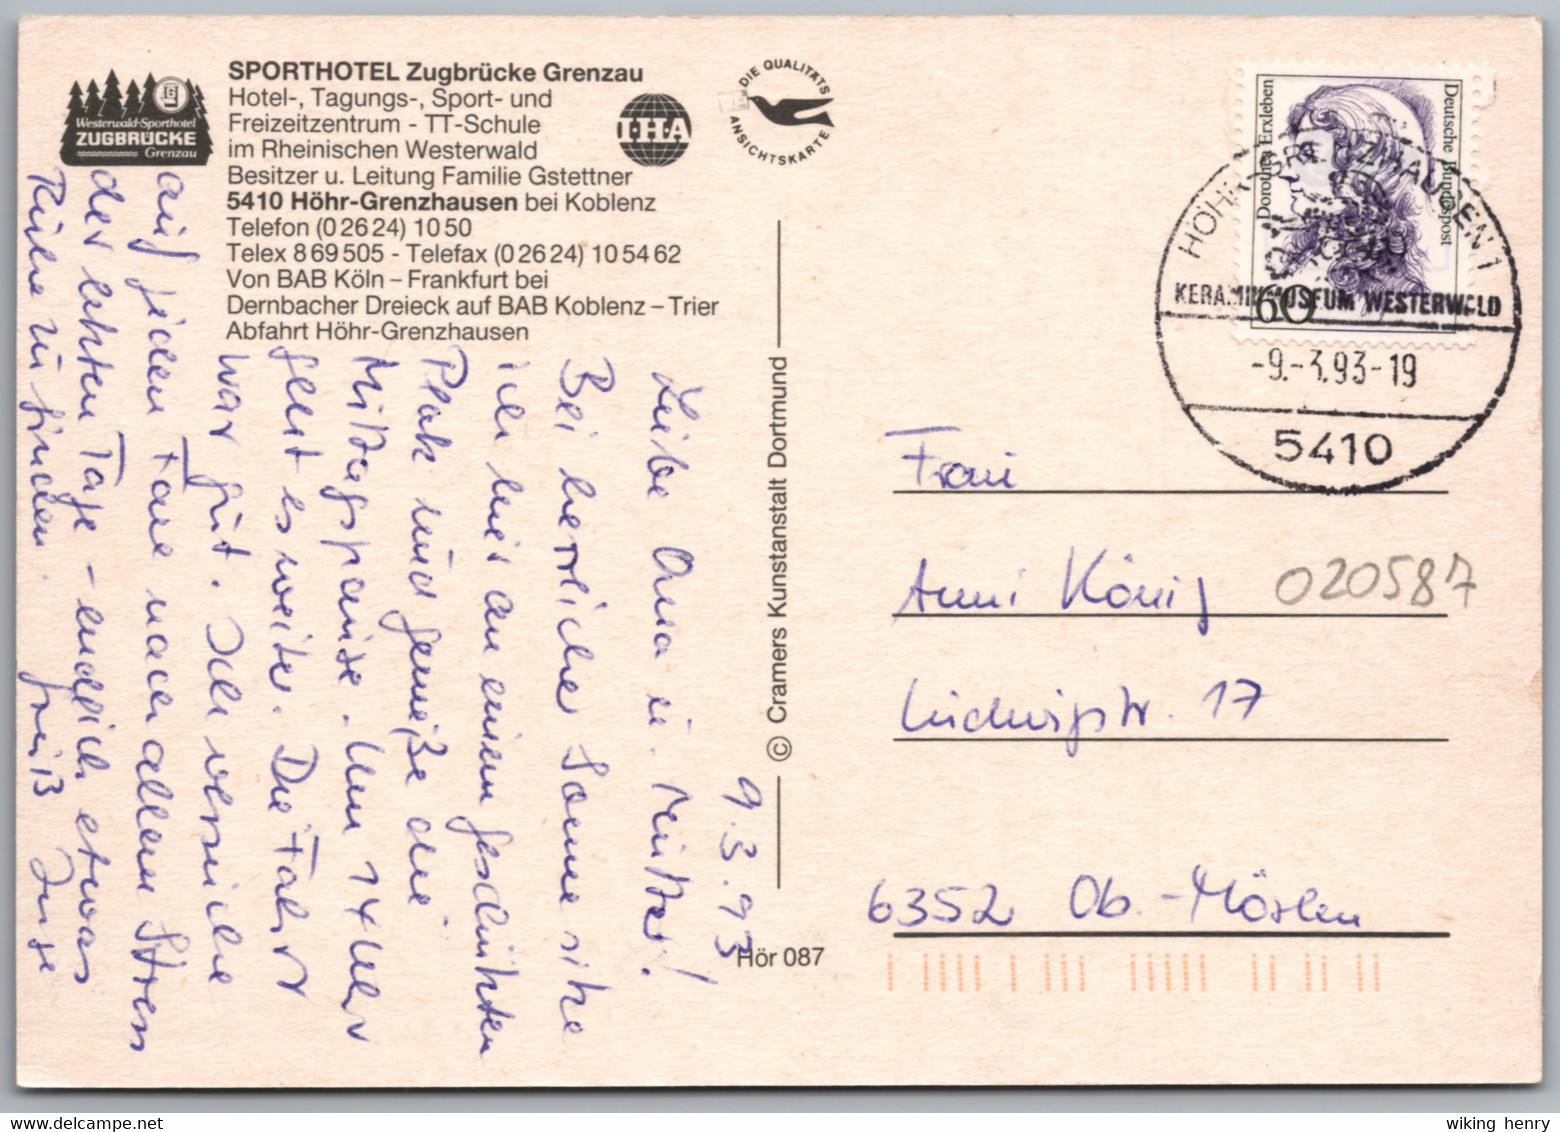 SPORTHOTEL Zugbrücke Grenzau
Hotel-, Tagungs-, Sport- und
Freizeitzentrum - TT-Schule
im Rheinischen Westerwald
Besitzer u. Leitung Familie Gstettner
5410 Höhr-Grenzhausen bei Koblenz
Telefon (0 26 24) 10 50
Telex 8 69 505 - Telefax (0 26 24) 10 54 62
Von BAB Köln – Frankfurt bei
Dernbacher Dreieck auf BAB Koblenz – Trier
Abfahrt Höhr-Grenzhausen
Westerwald-Sporthotel
ZUGBRÜCKE
Grenzau
I·H·A
DIE QUALITÄTS
ANSICHTSKARTE
9.3.93
Liebe Oma u. Mutter!
Bei herrlicher Sonne sitze
ich hier an einem geschützten
Platz und genieße die
Mittagspause. Um 14 Uhr
geht es weiter. Die Fahrt
war gut. Ich versuche
auf jeden Fall nach allem Stress
der letzten Tage - endlich etwas
Ruhe zu finden. Gruß
© Cramers Kunstanstalt Dortmund
Hör 087
Dorothea Erxleben
Deutsche Bundespost
60
HÖHR-GRENZHAUSEN 1
KERAMIKMUSEUM WESTERWALD
-9.-3.93-19
5410
Frau
Anni König
020587
Ludwigstr. 17
6352 Ob.-Mörlen
wiking henry